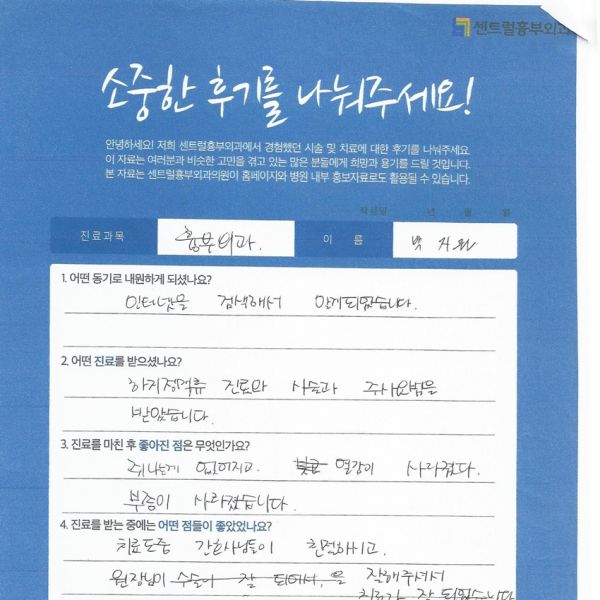 센트럴흉부외과
소중한 후기를 나눠주세요!
안녕하세요! 저희 센트럴흉부외과에서 경험했던 시술 및 치료에 대한 후기를 나눠주세요.
이 자료는 여러분과 비슷한 고민을 겪고 있는 많은 분들에게 희망과 용기를 드릴 것입니다.
본 자료는 센트럴흉부외과의원이 홈페이지와 병원 내부 홍보자료로도 활용될 수 있습니다.
작성일 년 월 일
진료과목 흉부외과. 이 름 박 지원
1. 어떤 동기로 내원하게 되셨나요?
인터넷을 검색해서 알게되었습니다.
2. 어떤 진료를 받으셨나요?
하지정맥류 진료와 시술과 주사요법을
받았습니다.
3. 진료를 마친 후 좋아진 점은 무엇인가요?
쥐나는게 없어지고. 열감이 사라졌다.
부종이 사라졌습니다.
4. 진료를 받는 중에는 어떤 점들이 좋았었나요?
치료도중 간호사님들이 친절하시고.
원장님이 수술이 잘 되어서, 을 잘해주셔서
치료가 잘 되었습니다